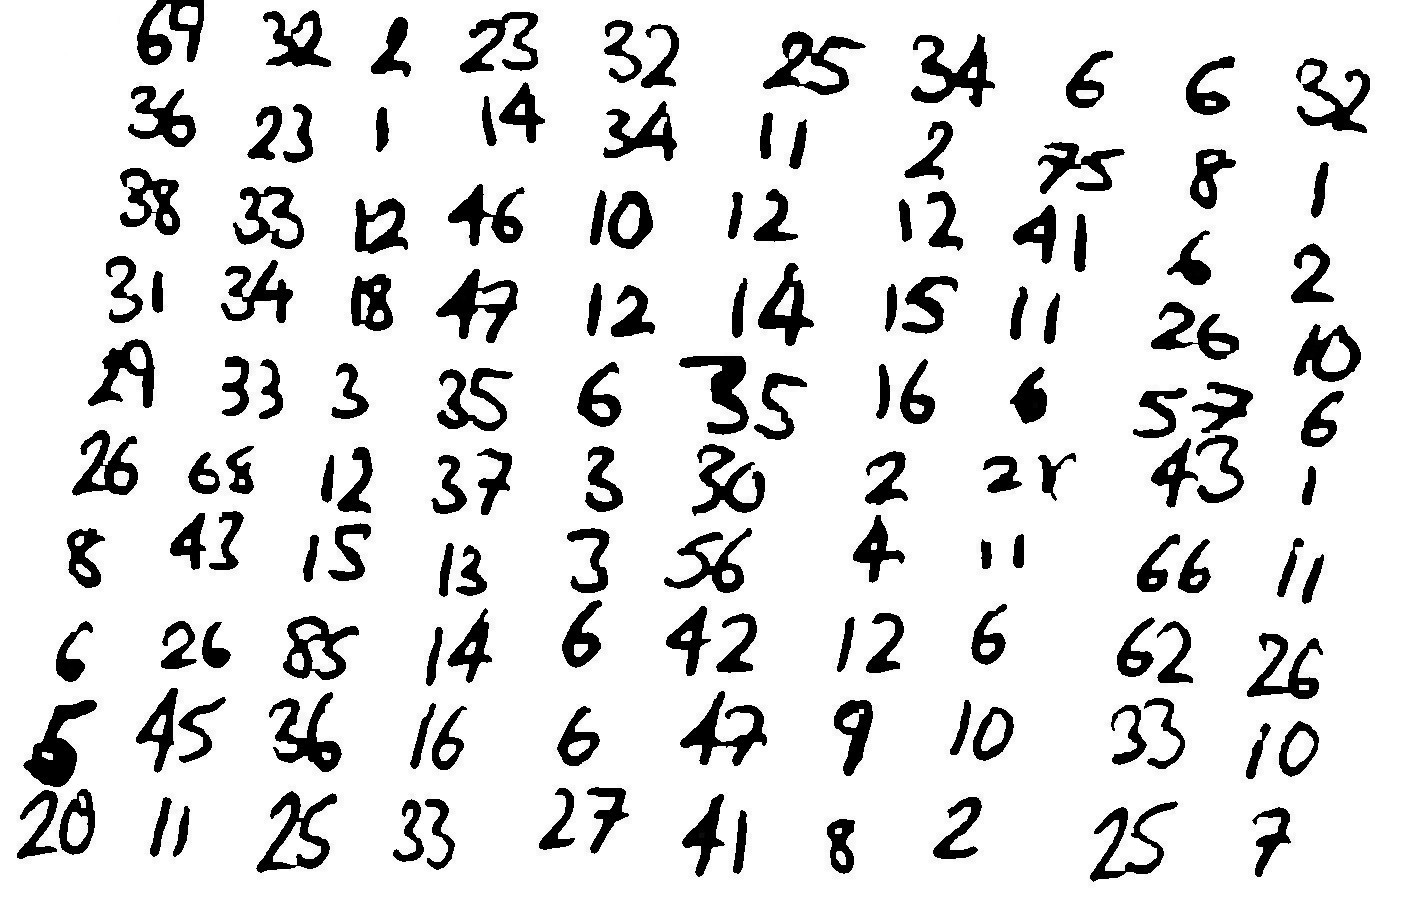 69 32 2 23 32 25 34 6 6 32
36 23 1 14 34 11 2 75 8 1
38 33 12 46 10 12 12 41 6 2
31 34 18 47 12 14 15 11 26 10
29 33 3 35 6 35 16 6 57 6
26 68 12 37 3 30 2 43 1
8 43 15 13 3 56 4 11 66 11
6 26 85 14 6 42 12 6 62 26
45 36 16 6 47 9 10 33 10
20 11 25 33 27 41 8 2 25 7